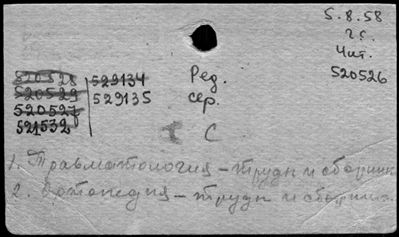 5.8.58
г.с.
Чит.
520526
520528
520529
520527
521532
529134
529135
Ред.
сер.
I С
1. Травматология – труды и сборник
2. Ортопедия – труды и сборник.